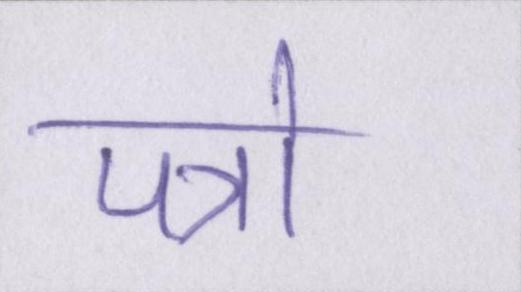 पत्रो